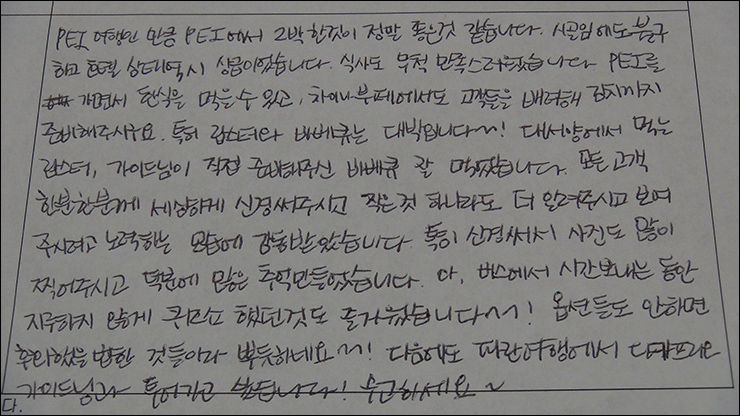 PEI 여행인 만큼 PEI에서 2박 한것이 정말 좋은것 같습니다. 시골임에도 불구
하고 호텔 상태역시 상급이었습니다. 식사도 무척 만족스러웠습니다 PEI를
가면서 한식을 먹을수 있고, 차이나부페에서도 고객들을 배려해 김치까지
준비해주시구요. 특히 랍스터와 바베큐는 대박입니다~! 대서양에서 먹는
랍스터, 가이드님이 직접 준비해주신 바베큐 잘 먹었습니다. 모든 고객
한분한분께 세심하게 신경써주시고 작은것 하나라도 더 알려주시고 보여
주시려고 노력하는 모습에 감동받았습니다 특히 신경써서 사진도 많이
찍어주시고 덕분에 많은 추억만들었습니다. 아, 버스에서 시간보내는 동안
지루하지 않게 했던것도 즐거웠습니다~! 옵션들도 안하면
후회했을만한 것들이라 뿌듯하네요~! 다음에도 파란여행에서
가이드님과 투어가고 싶습니다! 수고하세요~
다.